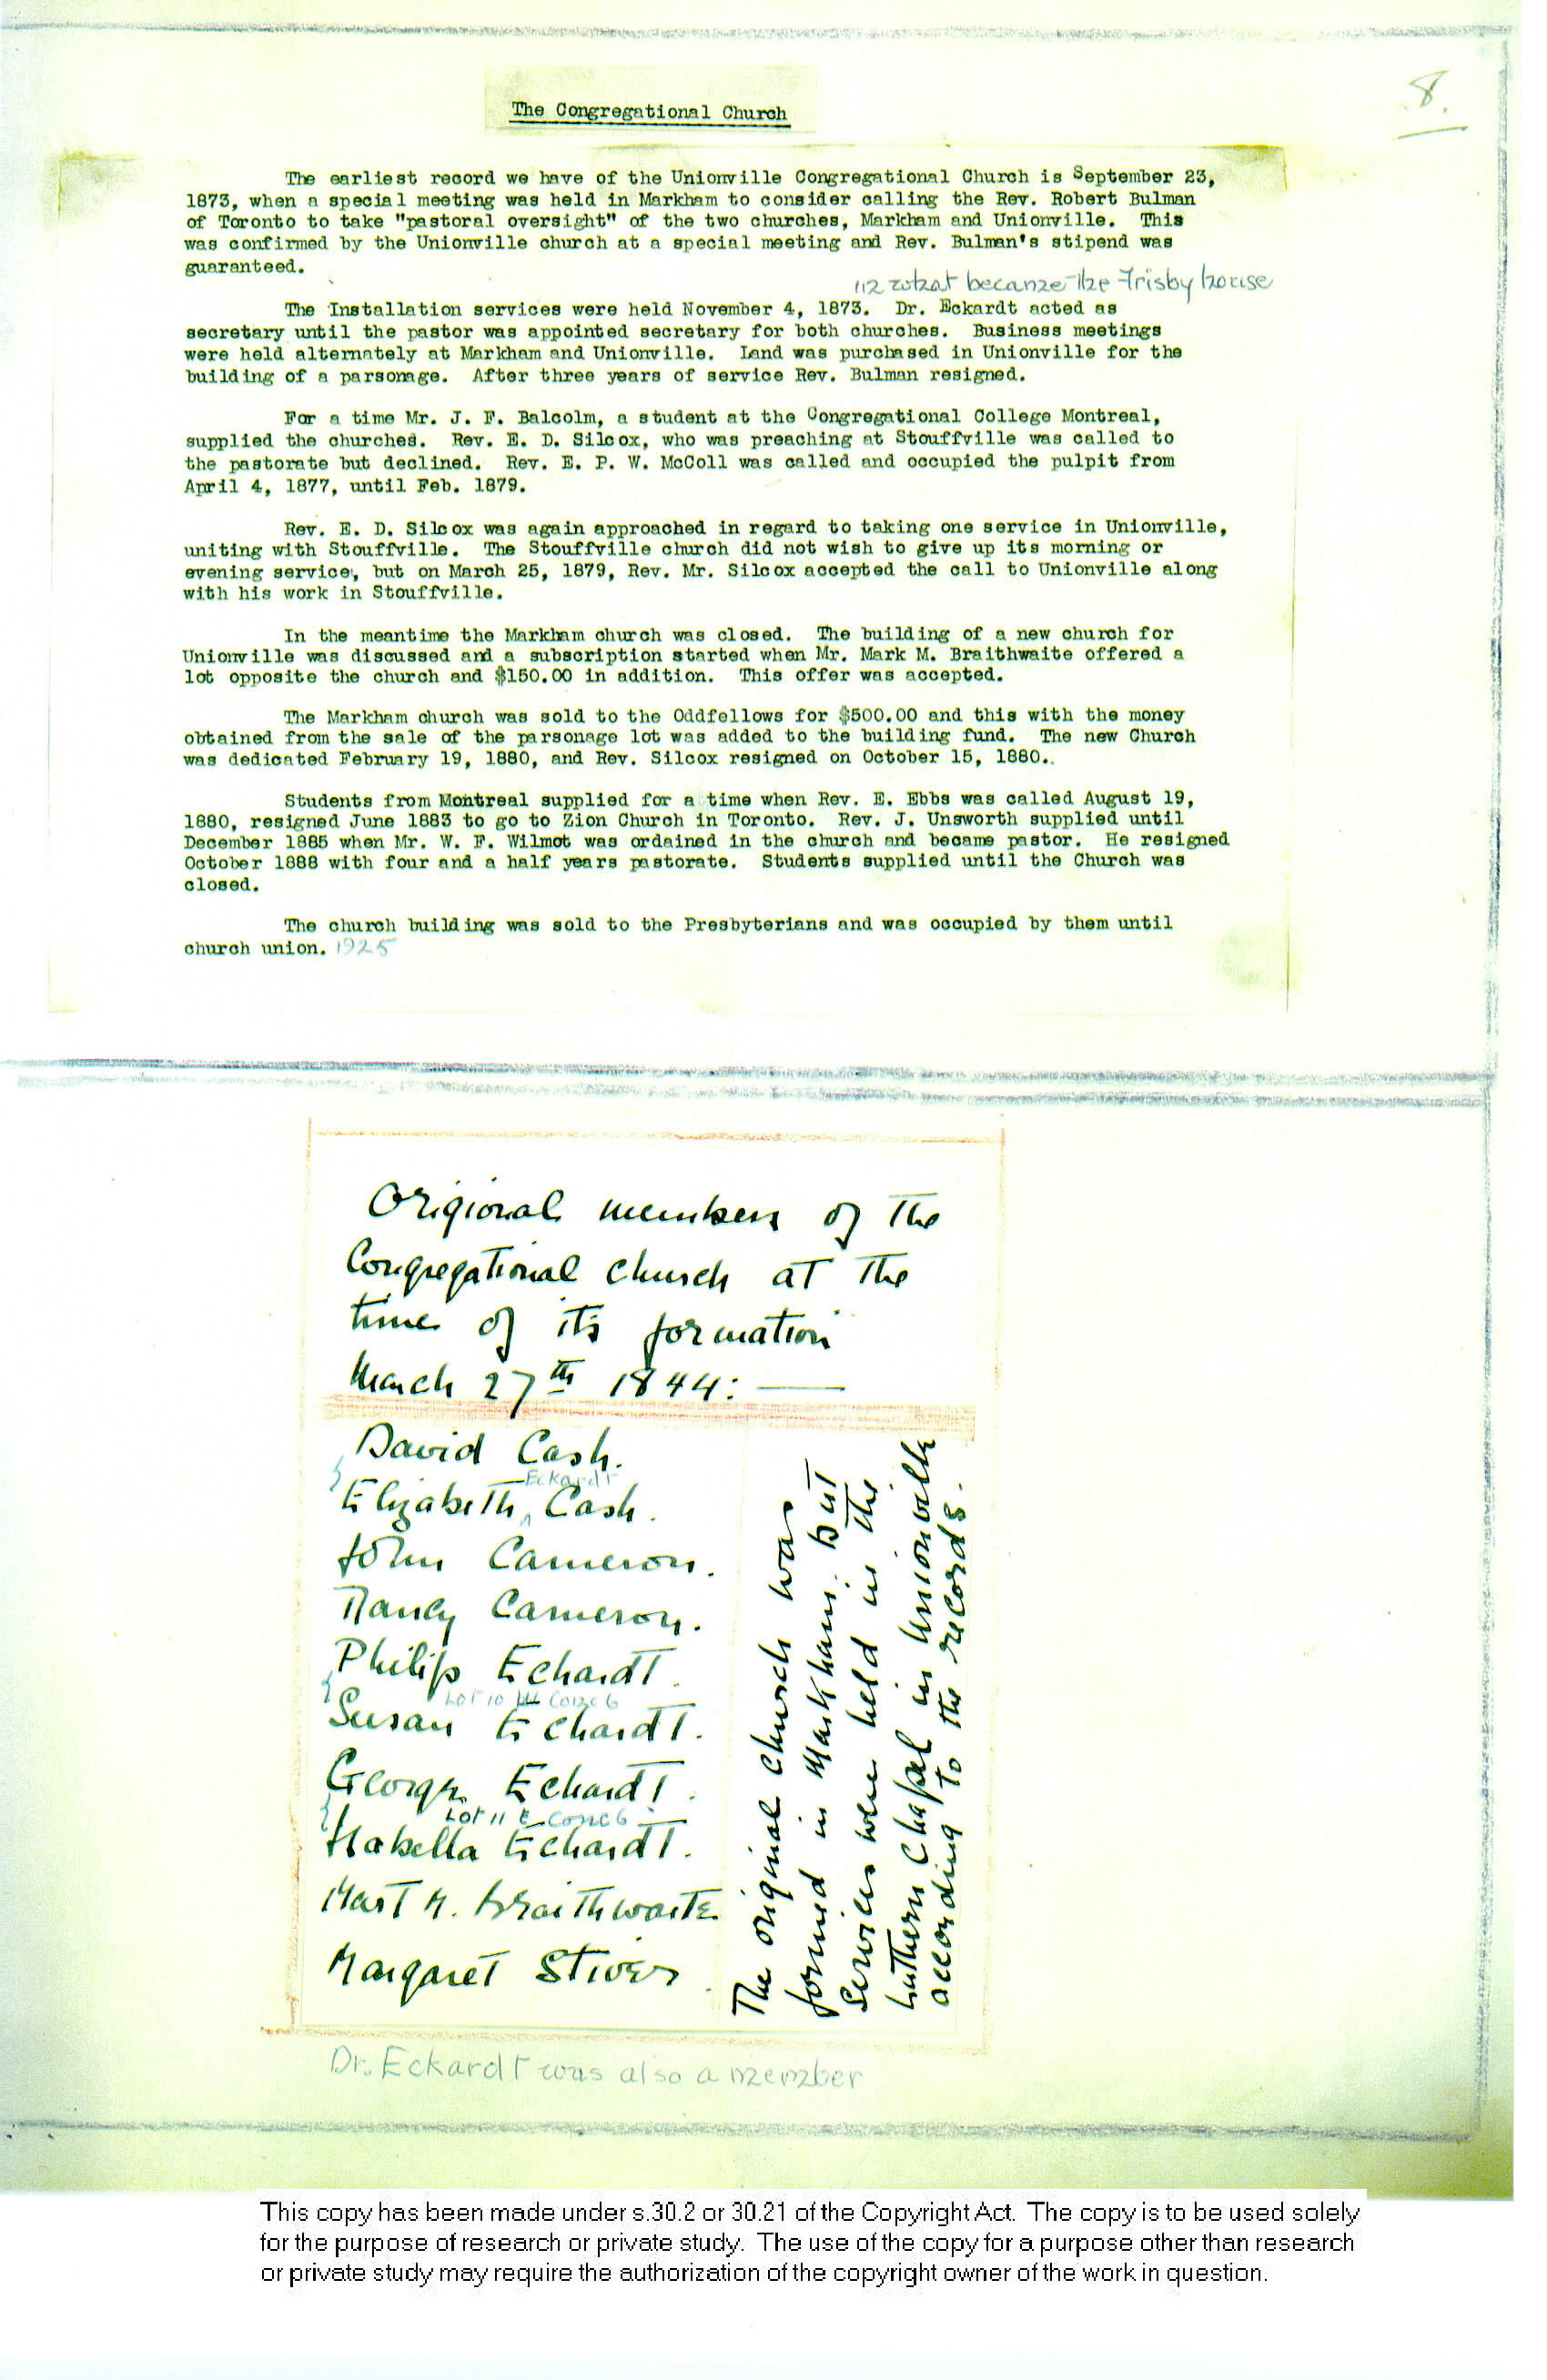 8.
The Congregational Church
The earliest record we have of the Unionville Congregational Church is September 23,
1873, when a special meeting was held in Markham to consider calling the Rev. Robert Bulman
of Toronto to take "pastoral oversight" of the two churches, Markham and Unionville. This
was confirmed by the Unionville church at a special meeting and Rev. Bulman's stipend was
guaranteed.
in what became the Frisby house
The Installation services were held November 4, 1873. Dr. Eckardt acted as
secretary until the pastor was appointed secretary for both churches. Business meetings
were held alternately at Markham and Unionville. Land was purchased in Unionville for the
building of a parsonage. After three years of service Rev. Bulman resigned.
For a time Mr. J. F. Balcolm, a student at the Congregational College Montreal,
supplied the churches. Rev. E. D. Silcox, who was preaching at Stouffville was called to
the pastorate but declined. Rev. E. P. W. McColl was called and occupied the pulpit from
April 4, 1877, until Feb. 1879.
Rev. E. D. Silcox was again approached in regard to taking one service in Unionville,
uniting with Stouffville. The Stouffville church did not wish to give up its morning or
evening service, but on March 25, 1879, Rev. Mr. Silcox accepted the call to Unionville along
with his work in Stouffville.
In the meantime the Markham church was closed. The building of a new church for
Unionville was discussed and a subscription started when Mr. Mark M. Braithwaite offered a
lot opposite the church and $150.00 in addition. This offer was accepted.
The Markham church was sold to the Oddfellows for $500.00 and this with the money
obtained from the sale of the parsonage lot was added to the building fund. The new Church
was dedicated February 19, 1880, and Rev. Silcox resigned on October 15, 1880..
Students from Montreal supplied for a time when Rev. E. Ebbs was called August 19,
1880, resigned June 1883 to go to Zion Church in Toronto. Rev. J. Unsworth supplied until
December 1885 when Mr. W. F. Wilmot was ordained in the church and became pastor. He resigned
October 1888 with four and a half years pastorate. Students supplied until the Church was
closed.
The church building was sold to the Presbyterians and was occupied by them until
church union. 1925
Origional members of the
Congregational church at the
time of its formation
March 27th 1844: —
David Cash.
Eckardt
Elizabeth Cash.
John Cameron.
Nancy Cameron.
Philip Echardt.
Lot 10 W Conc 6
Susan Echardt.
George Echardt.
Lot 11 E Conc 6
Isabella Echardt.
Mart M. Braithwaite
Margaret Stiver.
The original church was
formed in Markham but
Services were held in the
Luthern Chapel in Unionville
according to the records.
Dr. Eckardt was also a member
This copy has been made under s.30.2 or 30.21 of the Copyright Act. The copy is to be used solely
for the purpose of research or private study. The use of the copy for a purpose other than research
or private study may require the authorization of the copyright owner of the work in question.